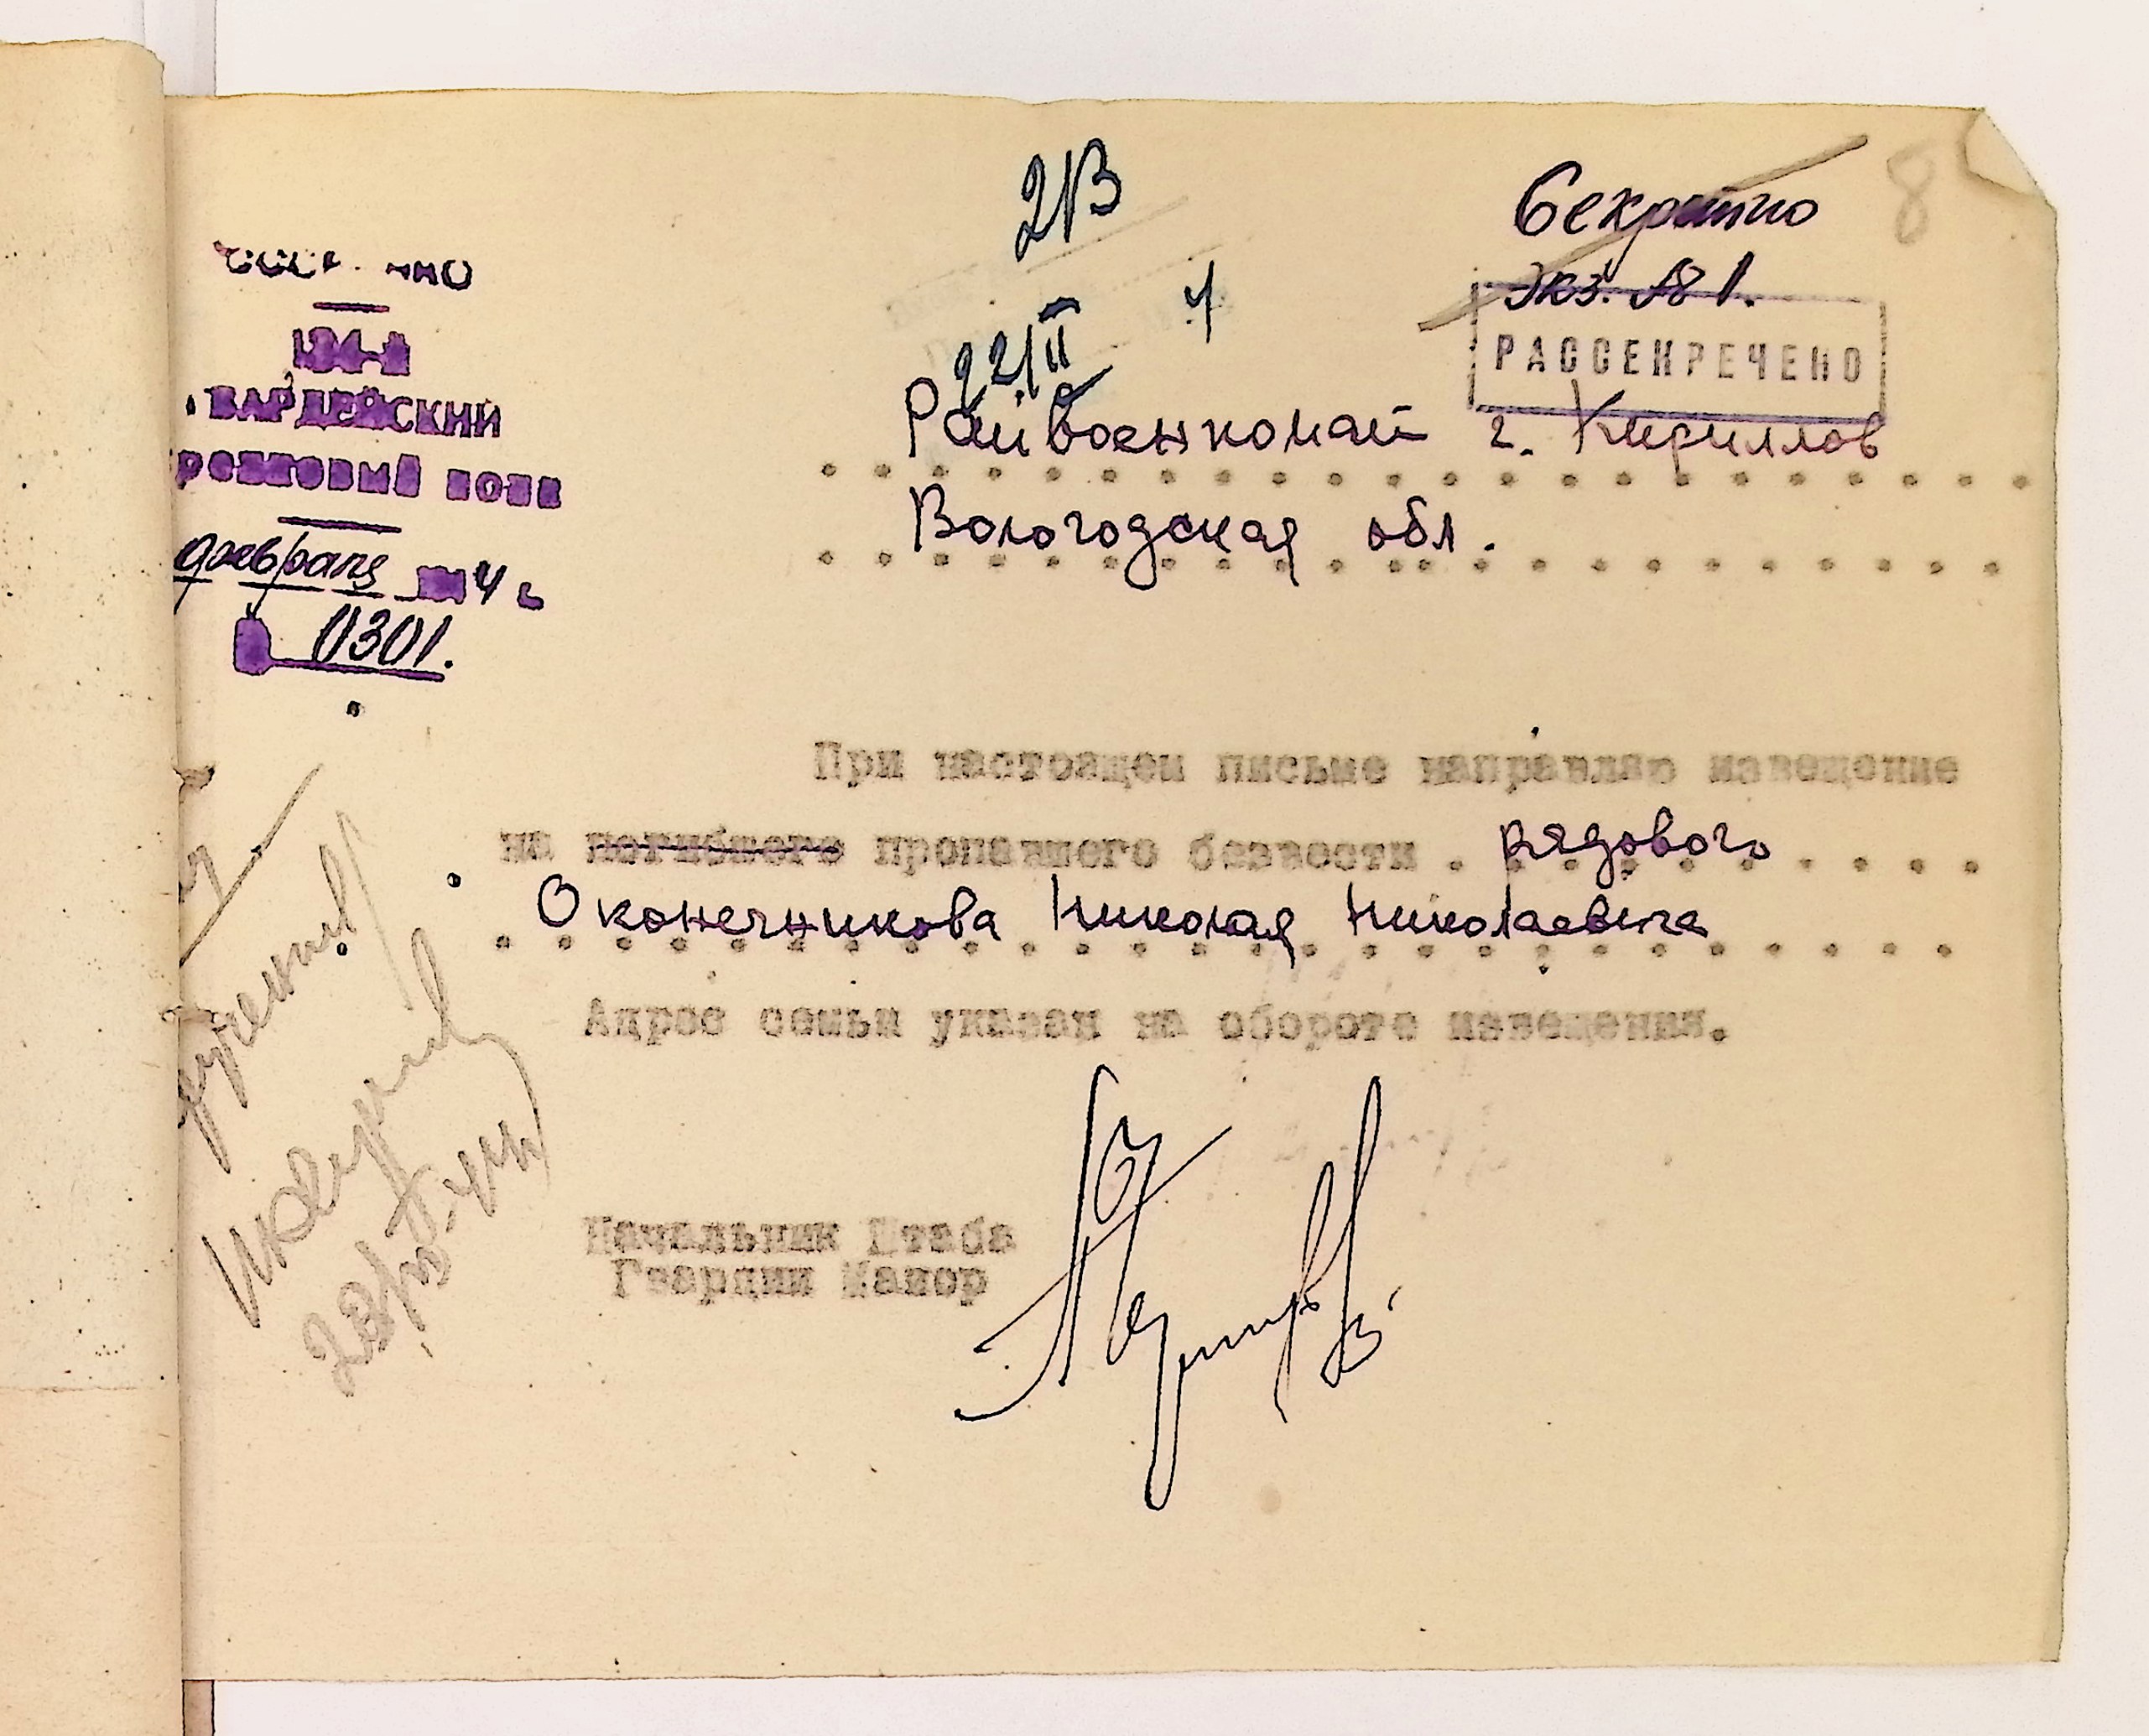 2В
Секретно
8
экз. №1.
РАССЕКРЕЧЕНО
22/II
4
ВАРДЕЙСКИЙ
февраля 4 г
0301.
Райвоенкомат г. Кириллов
Вологодская обл.
При настоящем письме направляю извещение
на погибшего пропавшего безвести . рядового
Оконечникова Николая Николаевича
Адрес семьи указан на обороте извещения.
Начальник Штаба
Гвардии Майор